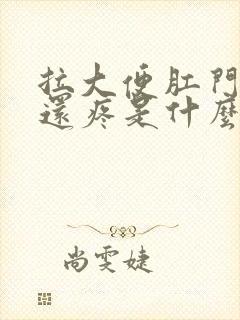 拉大便肛門
還疼是什麼
尚雯婕